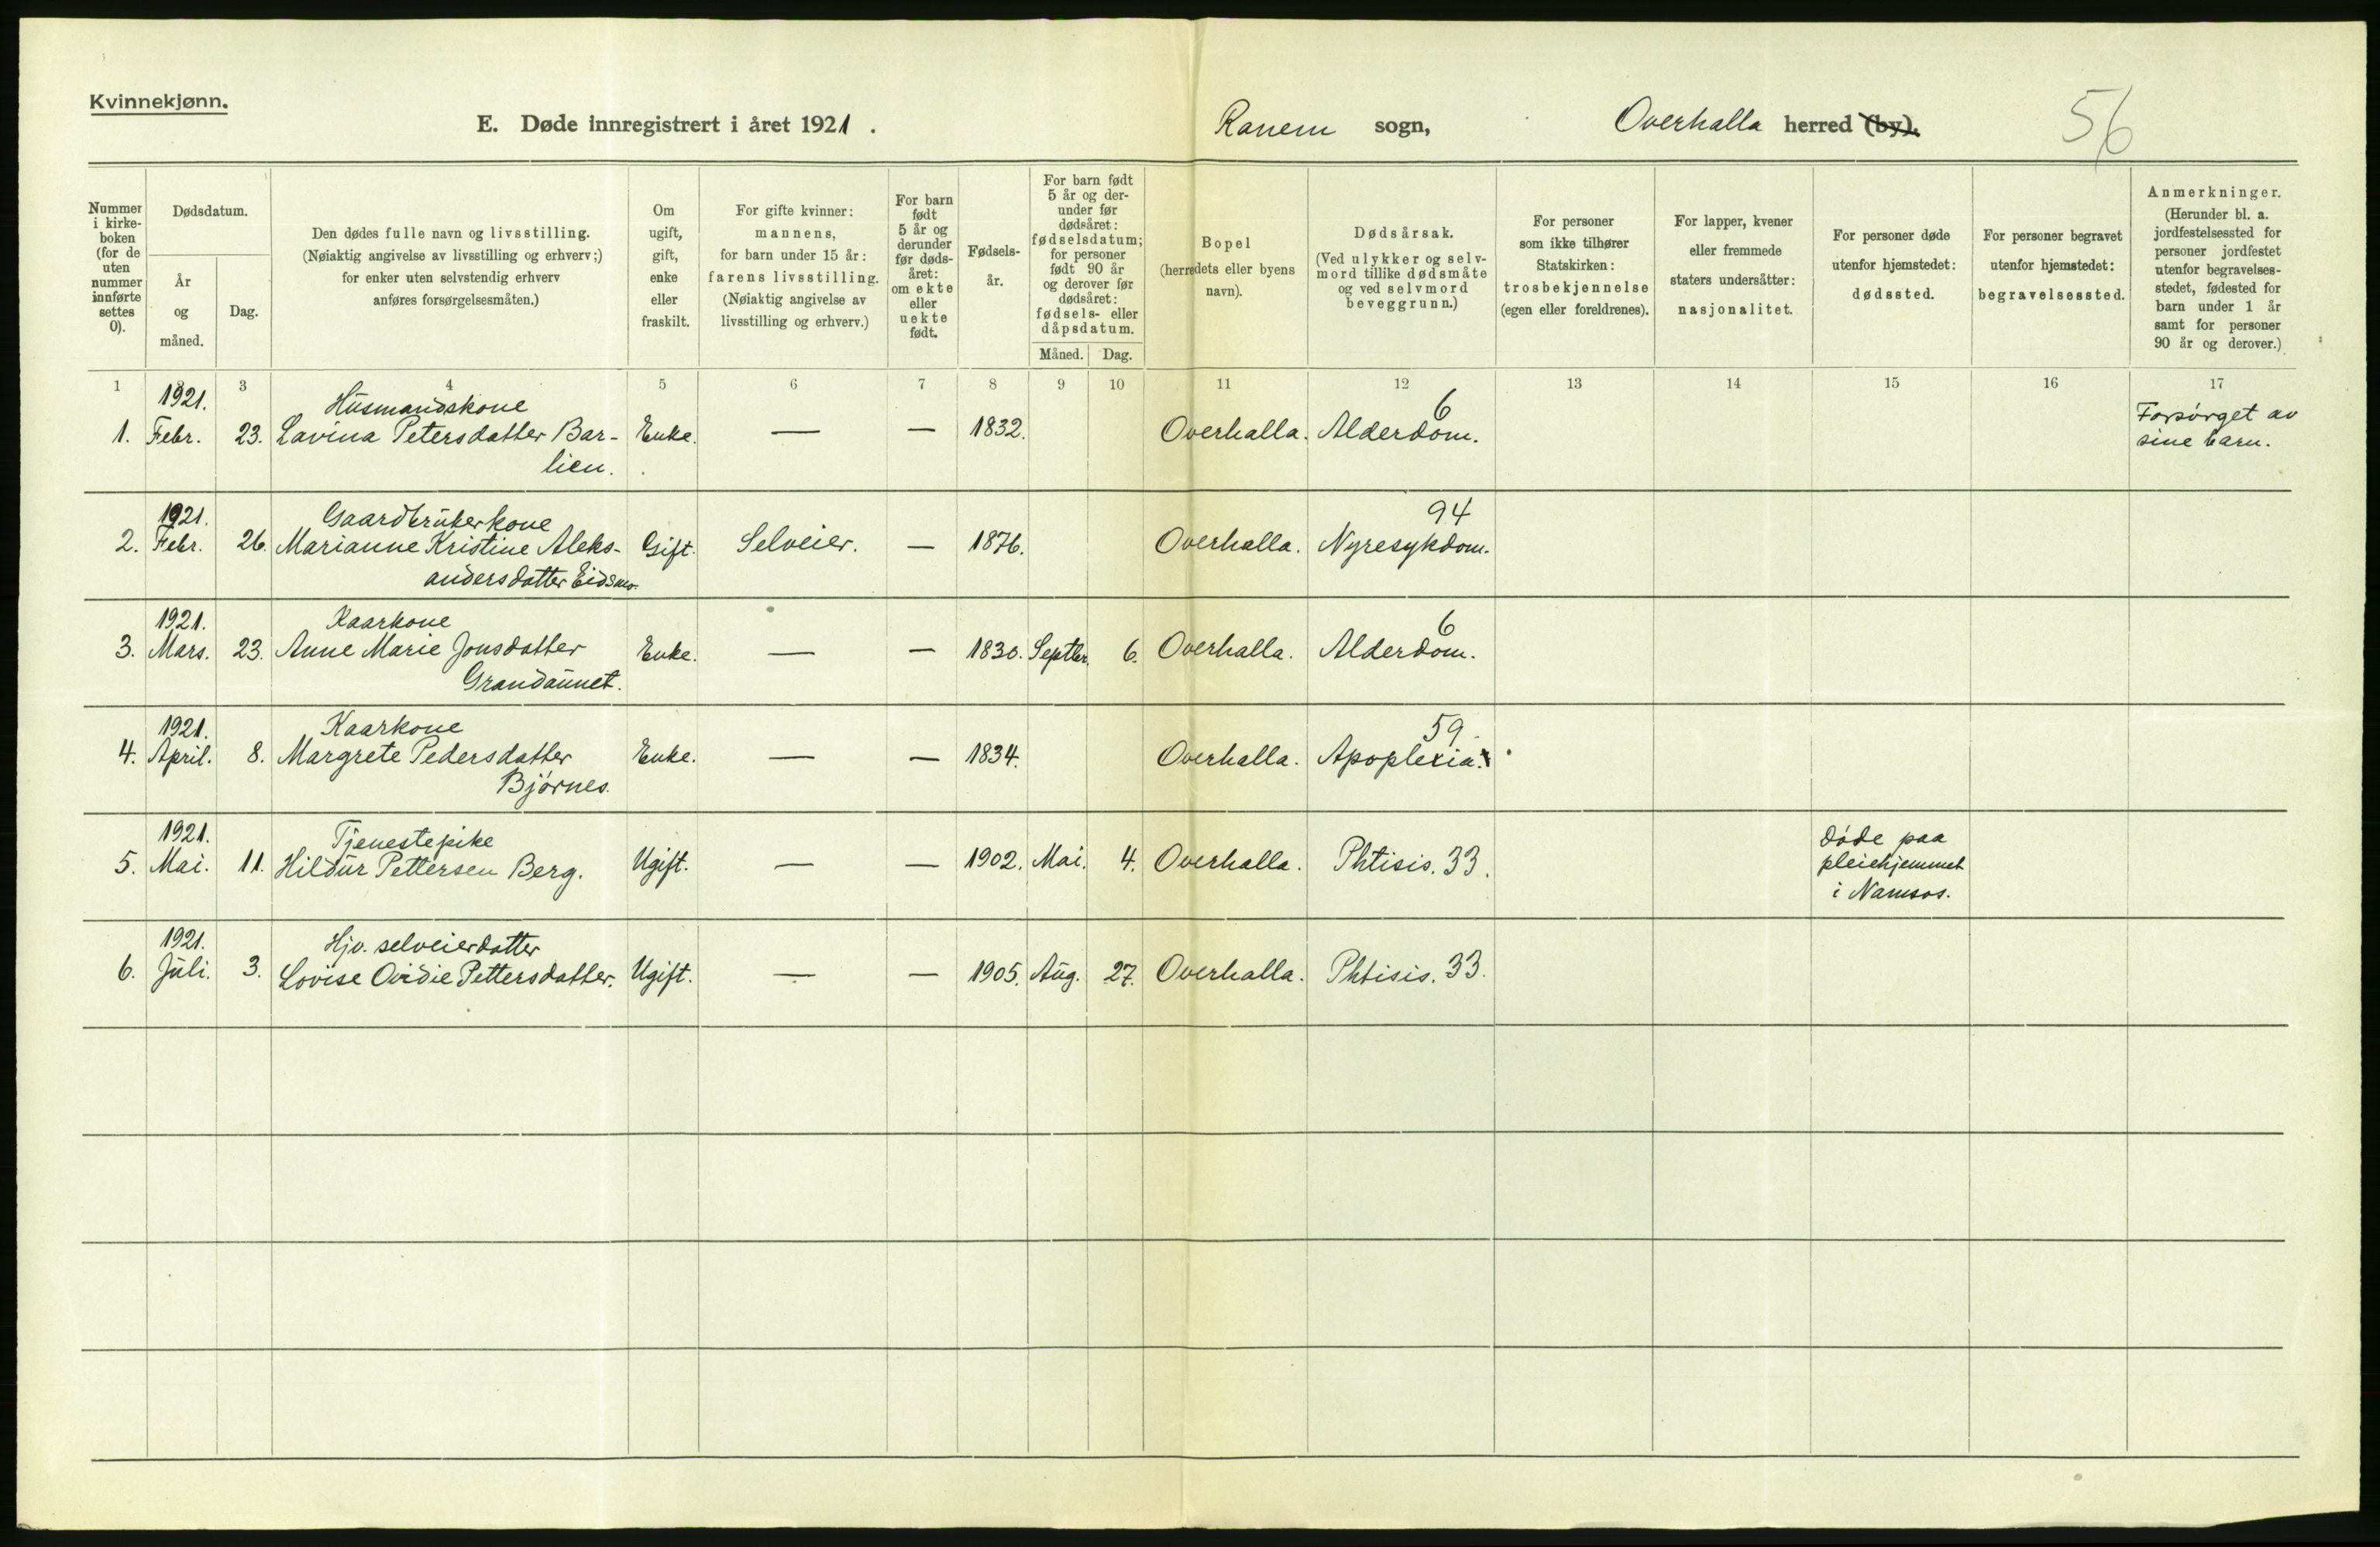 Kvinnekjønn.
E. Døde innregistrert i året 1921.
Ranem sogn,
Overhalla herred (by).
56
Nummer i kirkeboken (for de uten nummer innførte settes 0).
Dødsdatum.
År og måned.
Dag.
Den dødes fulle navn og livsstilling.
(Nøiaktig angivelse av livsstilling og erhverv;)
for enker uten selvstendig erhverv
anføres forsørgelsesmåten.)
Om ugift, gift, enke eller fraskilt.
For gifte kvinner:
mannens,
for barn under 15 år:
farens livsstilling.
(Nøiaktig angivelse av
livsstilling og erhverv.)
For barn født 5 år og derunder før dødsåret: om ekte eller uekte født.
Fødselsår.
For barn født 5 år og derunder før dødsåret: fødselsdatum; for personer født 90 år og derover før dødsåret: fødsels- eller dåpsdatum.
Måned.
Dag.
Bopel
(herredets eller byens
navn).
Dødsårsak.
(Ved ulykker og selvmord tillike dødsmåte og ved selvmord beveggrunn.)
For personer
som ikke tilhører
Statskirken:
trosbekjennelse
(egen eller foreldrenes).
For lapper, kvener
eller fremmede
staters undersåtter:
nasjonalitet.
For personer døde
utenfor hjemstedet:
dødssted.
For personer begravet
utenfor hjemstedet:
begravelsessted.
Anmerkninger.
(Herunder bl. a.
jordfestelsessted for
personer jordfestet
utenfor begravelses-
stedet, fødested for
barn under 1 år
samt for personer
90 år og derover.)
1 3 4 5 6 7 8 9 10 11 12 13 14 15 16 17
1921. Husmandskone 6
1. Febr. 23. Lavina Petersdatter Bar- Enke. — — 1832. Overhalla. Alderdom. Forsørget av
lien. sine barn.
1921. Gaardbrukerkone 94
2. Febr. 26. Marianne Kristine Aleks- Gift. Selveier. — 1876. Overhalla. Nyresykdom.
andersdatter Eidsmo.
1921. Kaarkone 6
3. Mars. 23. Anne Marie Jonsdatter Enke. — — 1830. Septbr. 6. Overhalla. Alderdom.
Grandaunet.
1921. Kaarkone 59.
4. April. 8. Margrete Pedersdatter Enke. — — 1834. Overhalla. Apoplexia.
Bjørnes.
1921. Tjenestepike døde paa
5. Mai. 11. Hildur Pettersen Berg. Ugift. — — 1902. Mai. 4. Overhalla. Phtisis. 33. pleiehjemmet
i Namsos.
1921. Hjv. selveierdatter
6. Juli. 3. Lovise Ovidie Pettersdatter. Ugift. — — 1905. Aug. 27. Overhalla. Phtisis. 33.